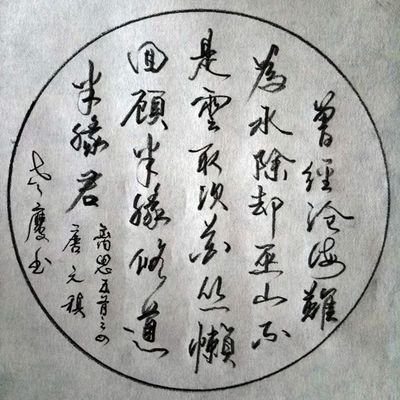 曾經滄海難
為水除却巫山不
是雲取次花丛懶
回顧半緣修道
半緣君
離思五首之四
唐元稹
慶书